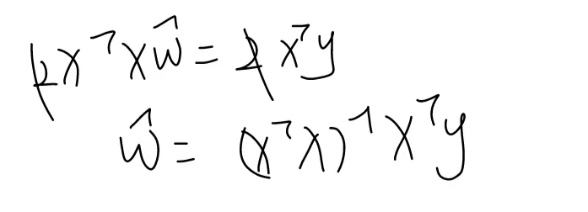 2X^T X ŵ = 2 X^T y
ŵ = (X^T X)^-1 X^T y